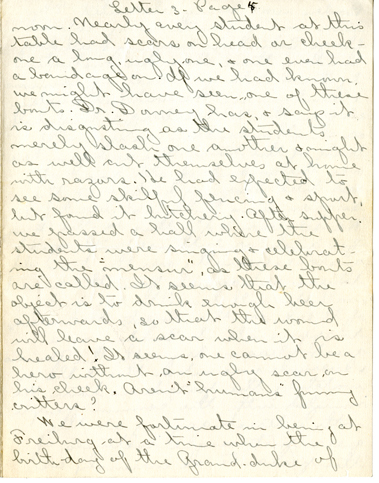 Letter 3 - Page 5
noon. Nearly every student at this
table had scars on head or cheek -
one a long, ugly, one, & one even had
a bandage on. If we had known
we might have seen one of these
bouts. Dr. Downey has, & says it
is disgusting as the students
merely slash one another & might
as well cut themselves at home
with razors. He had expected to
see some skillful fencing & sport,
but found it butchery. After supper
we passed a hall where the
students were singing & celebrat-
ing the "mensur", as these bouts
are called. It seems that the
object is to drink enough beer
afterwards, so that the wound
will leave a scar when it is
healed! It seems, one cannot be a
hero without an ugly scar on
his cheek. Aren't "humans" funny
critters?
We were fortunate in being at
Freiburg at a time when the
birth-day of the Grand-duke of